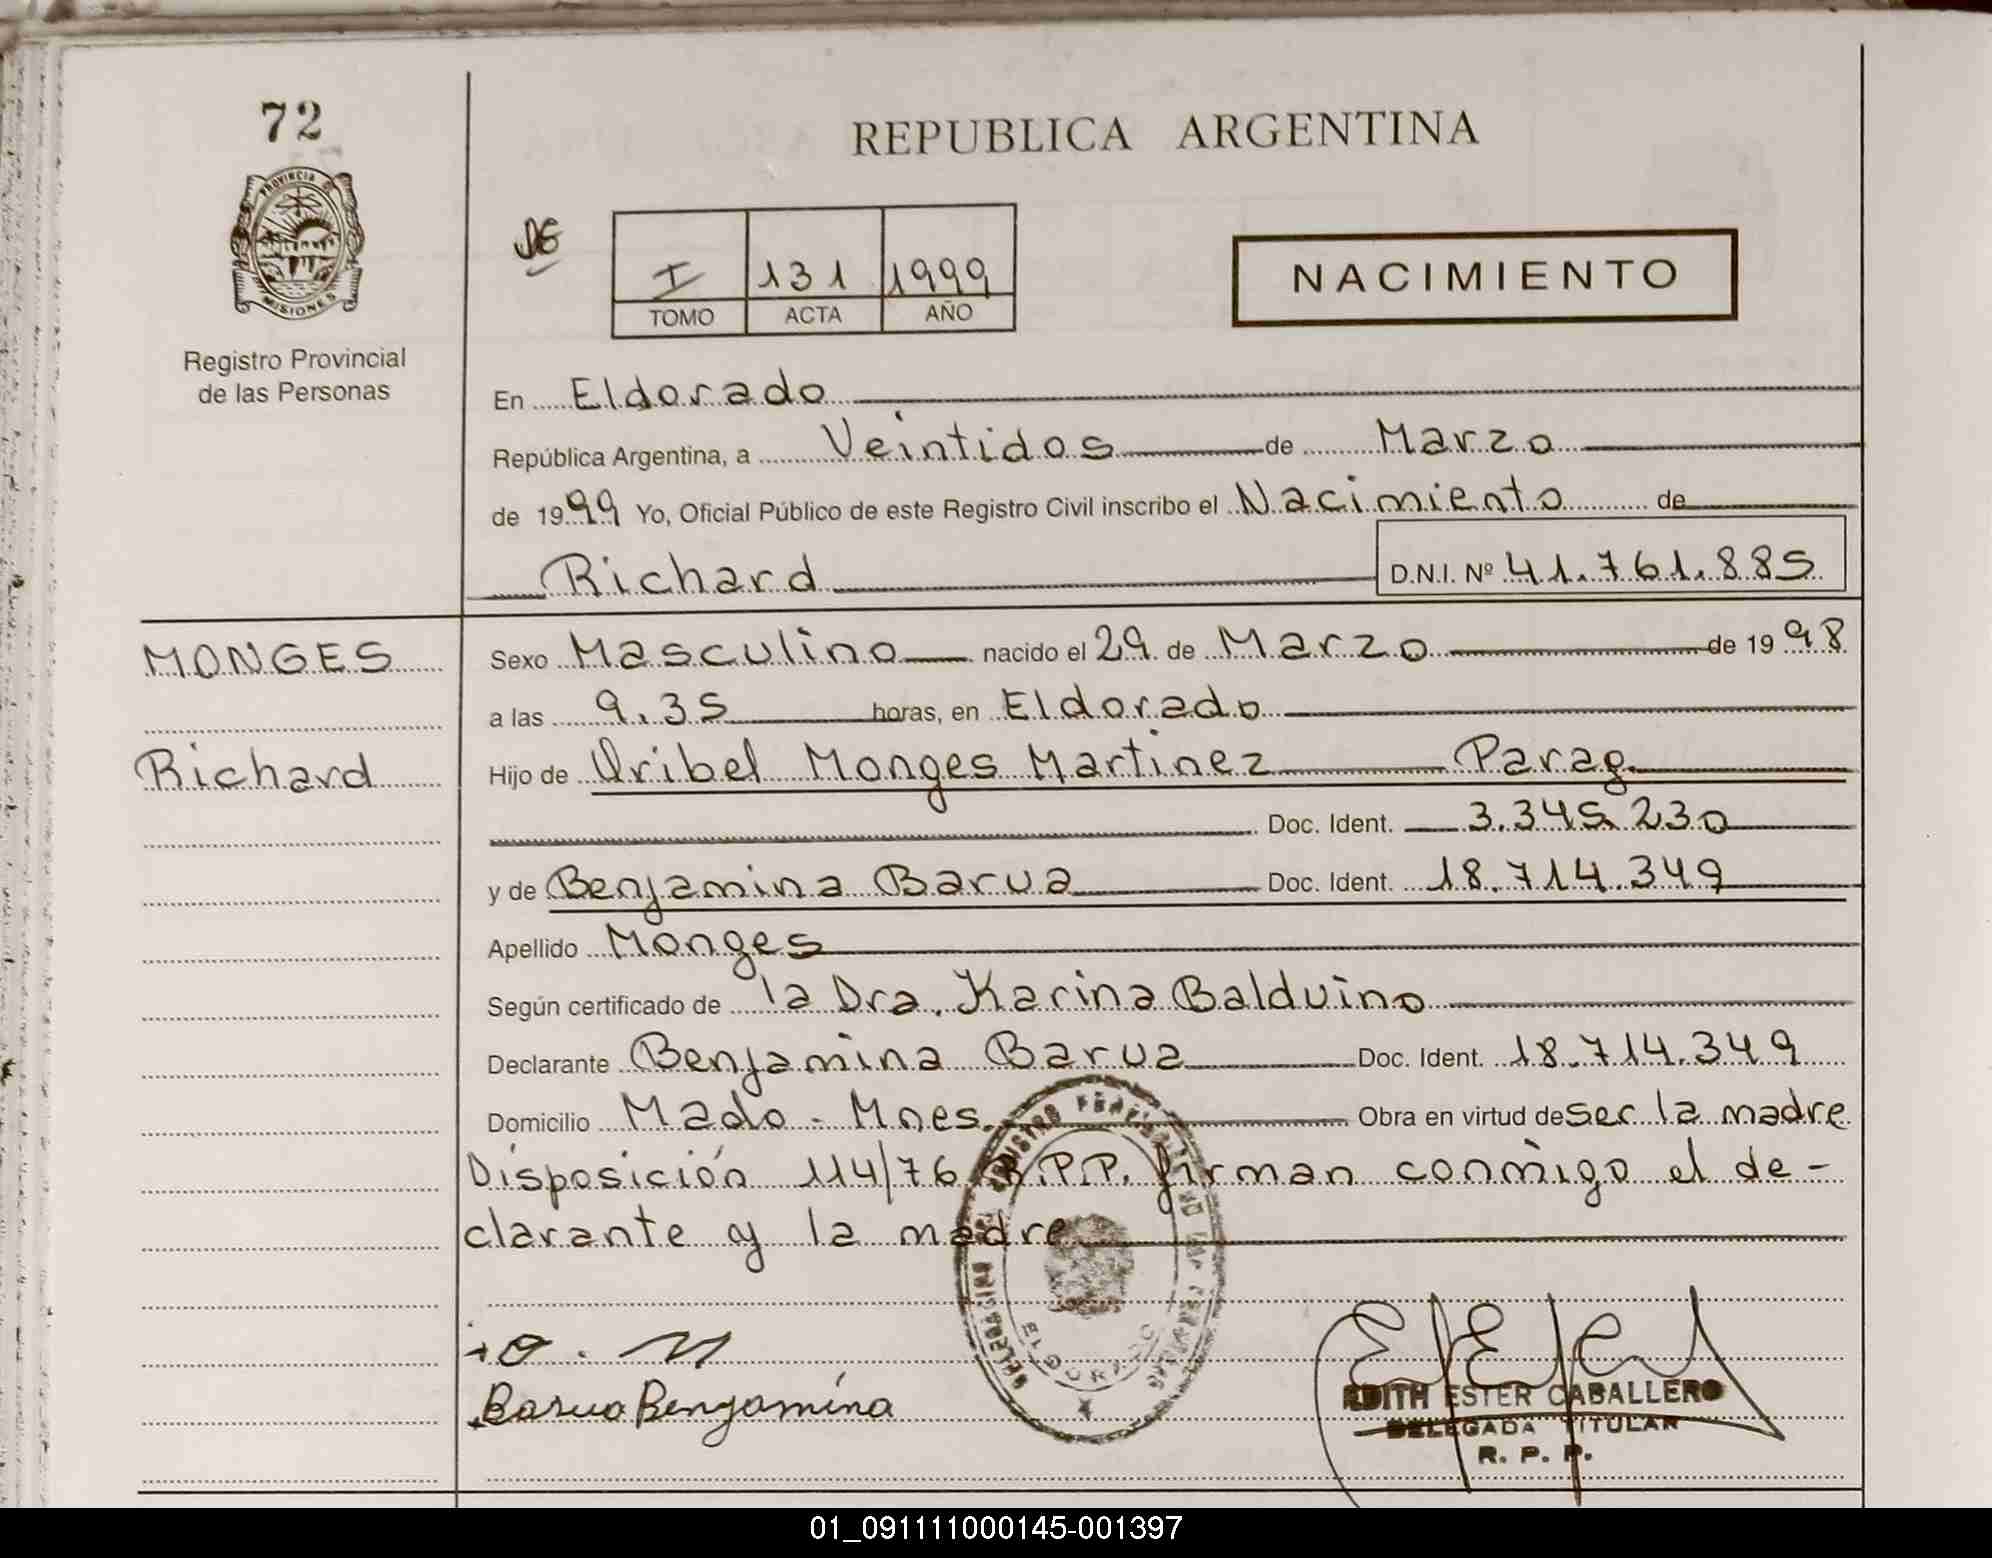 72
REPUBLICA ARGENTINA
PROVINCIA DE
MISIONES
I 131 1999
TOMO ACTA AÑO
NACIMIENTO
Registro Provincial
de las Personas
En Eldorado
República Argentina, a Veintidos de Marzo
de 1999 Yo, Oficial Público de este Registro Civil inscribo el Nacimiento de
Richard D.N.I. Nº 41.761.885
MONGES
Richard
Sexo Masculino nacido el 29 de Marzo de 1998
a las 9.35 horas, en Eldorado
Hijo de Oribel Monges Martinez Parag.
Doc. Ident. 3.345.230
y de Benjamina Barua Doc. Ident. 18.714.349
Apellido Monges
Según certificado de la Dra. Karina Balduino
Declarante Benjamina Barua Doc. Ident. 18.714.349
Domicilio Mado - Mnes. Obra en virtud de ser la madre
Disposición 114/76 R.P.P. firman conmigo el de-
clarante y la madre
Barua Bengamina
ELDORADO
EDITH ESTER CABALLERO
DELEGADA TITULAR
R. P. P.
01_091111000145-001397